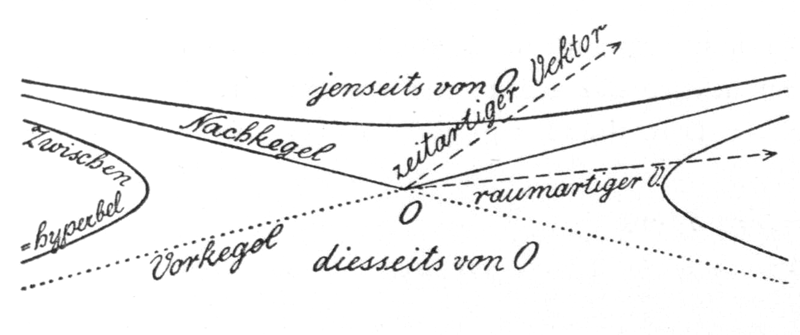 jenseits von O
zeitartiger Vektor
Nachkegel
Zwischen
=hyperbel
raumartiger V.
O
Vorkegel
diesseits von O